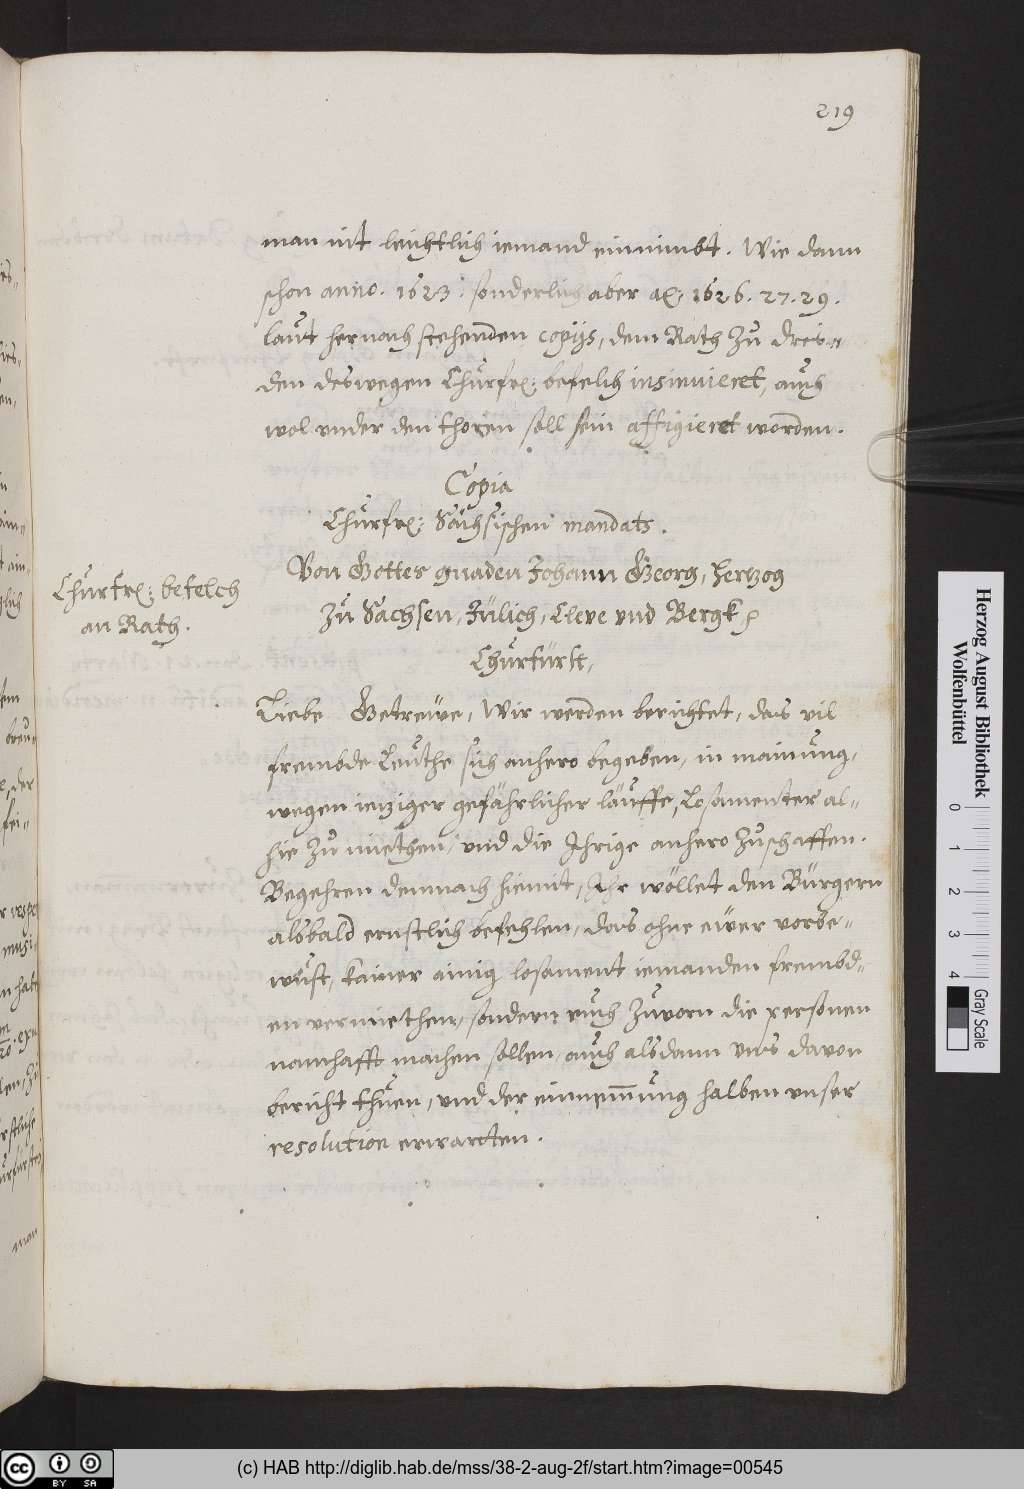 219
man nit leichtlich iemand einnimbt. Wie dann
schon anno. 1623. sonderlich aber aõ: 1626. 27. 29.
laut hernach stehenden copijs, dem Rath zu Dres=
den deswegen Churfrl: befelch insinuieret, auch
wol under den thoren soll sein affigieret worden.
Copia
Churfrl: Sächsischen mandats.
Churfrl: befelch
an Rath.
Von Gottes gnaden Johann Georg, Hertzog
zu Sachsen, Jülich, Cleve und Bergk
Churfürst,
Liebe Getreüe, Wir werden berichtet, das vil
frembde Leuthe sich anhero begeben, in mainung,
wegen ieziger gefährlicher läuffe, Losamenter al=
hie zu miethen, und die Ihrige anhero zuschaffen.
Begehren demnach hiemit, Ihr wöllet den Bürgern
alsbald ernstlich befehlen, das ohne ewer vorbe=
wust, kainer ainig losament iemanden frembd=
en vermiethen, sondern euch zuvorn die personen
namhafft machen sollen, auch alsdann uns davon
bericht thuen, und der einnem̄ung halben unser
resolution erwarten.
man
Herzog August Bibliothek
Wolfenbüttel
0 1 2 3 4
Gray Scale
cc BY SA
(c) HAB http://diglib.hab.de/mss/38-2-aug-2f/start.htm?image=00545